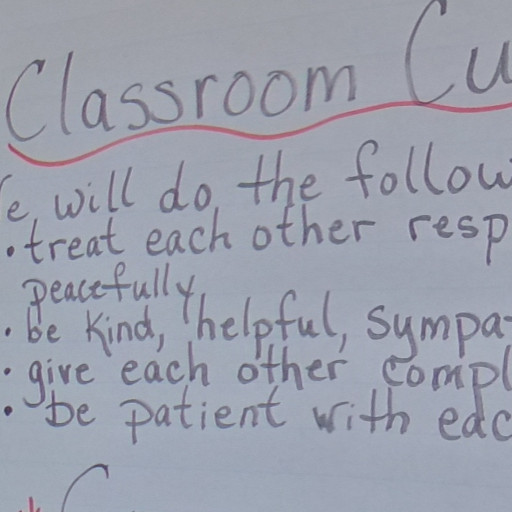 Classroom Cu
e will do the follow
• treat each other resp
peacefully
• be kind, helpful, sympa
• give each other compl
• be patient with eac